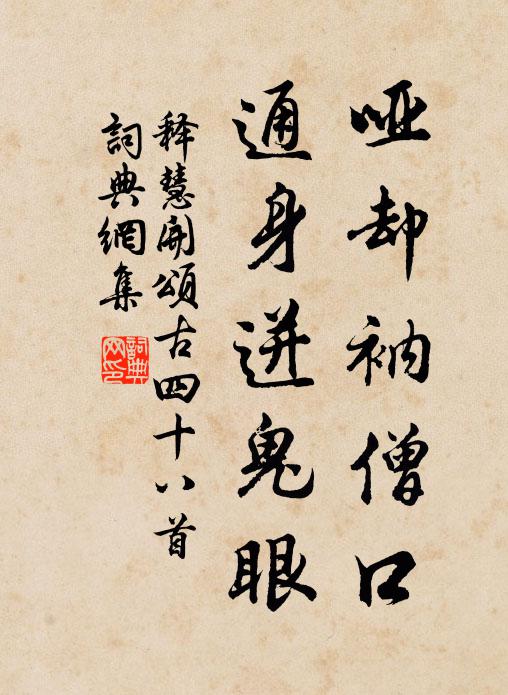 哑却衲僧口
通身迸鬼眼
释慧開頌古四十八首
詞典網集
詞典網印